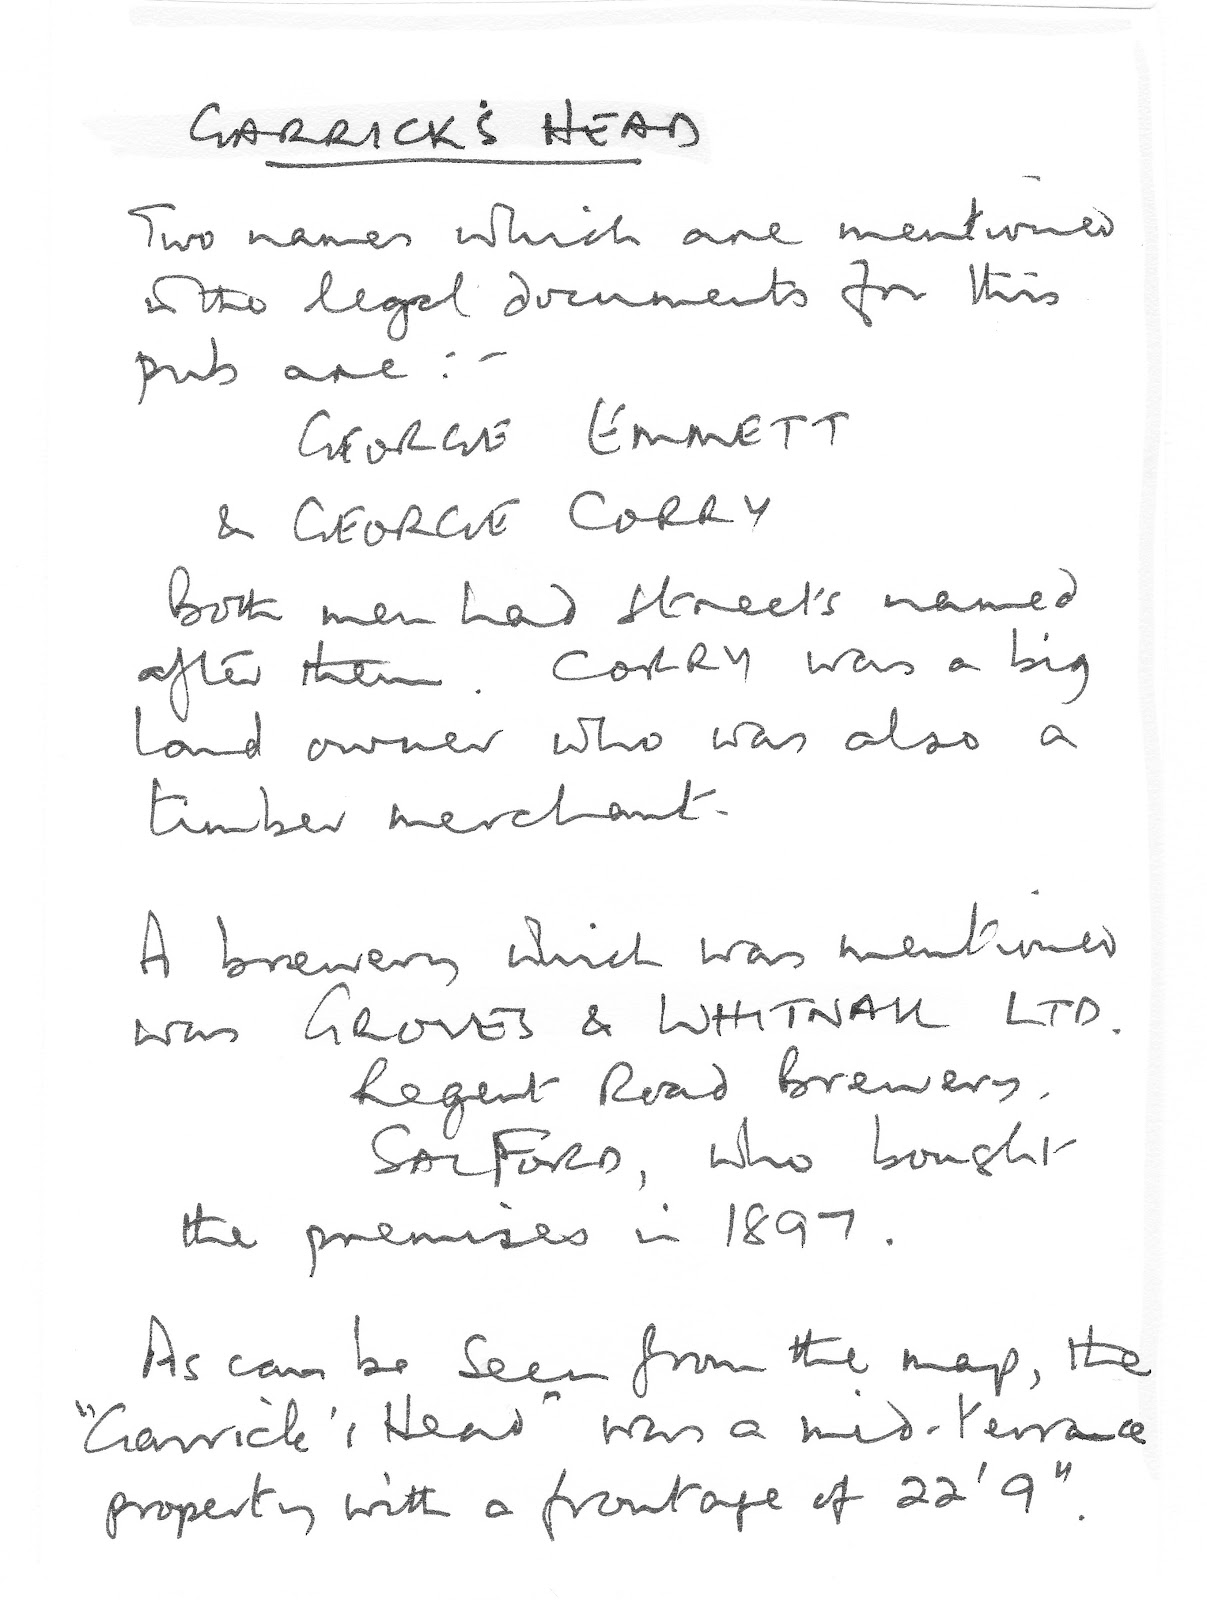 GARRICK'S HEAD
Two names which are mentioned
in the legal documents for this
pub are :-
GEORGE EMMETT
& GEORGE CORRY
Both men had street's named
after them. CORRY was a big
land owner who was also a
timber merchant.
A brewery which was mentioned
was GROVES & WHITNALL LTD.
Regent Road Brewery,
SALFORD, who bought
the premises in 1897.
As can be seen from the map, the
"Garrick's Head" was a mid-terrace
property with a frontage of 22'9".